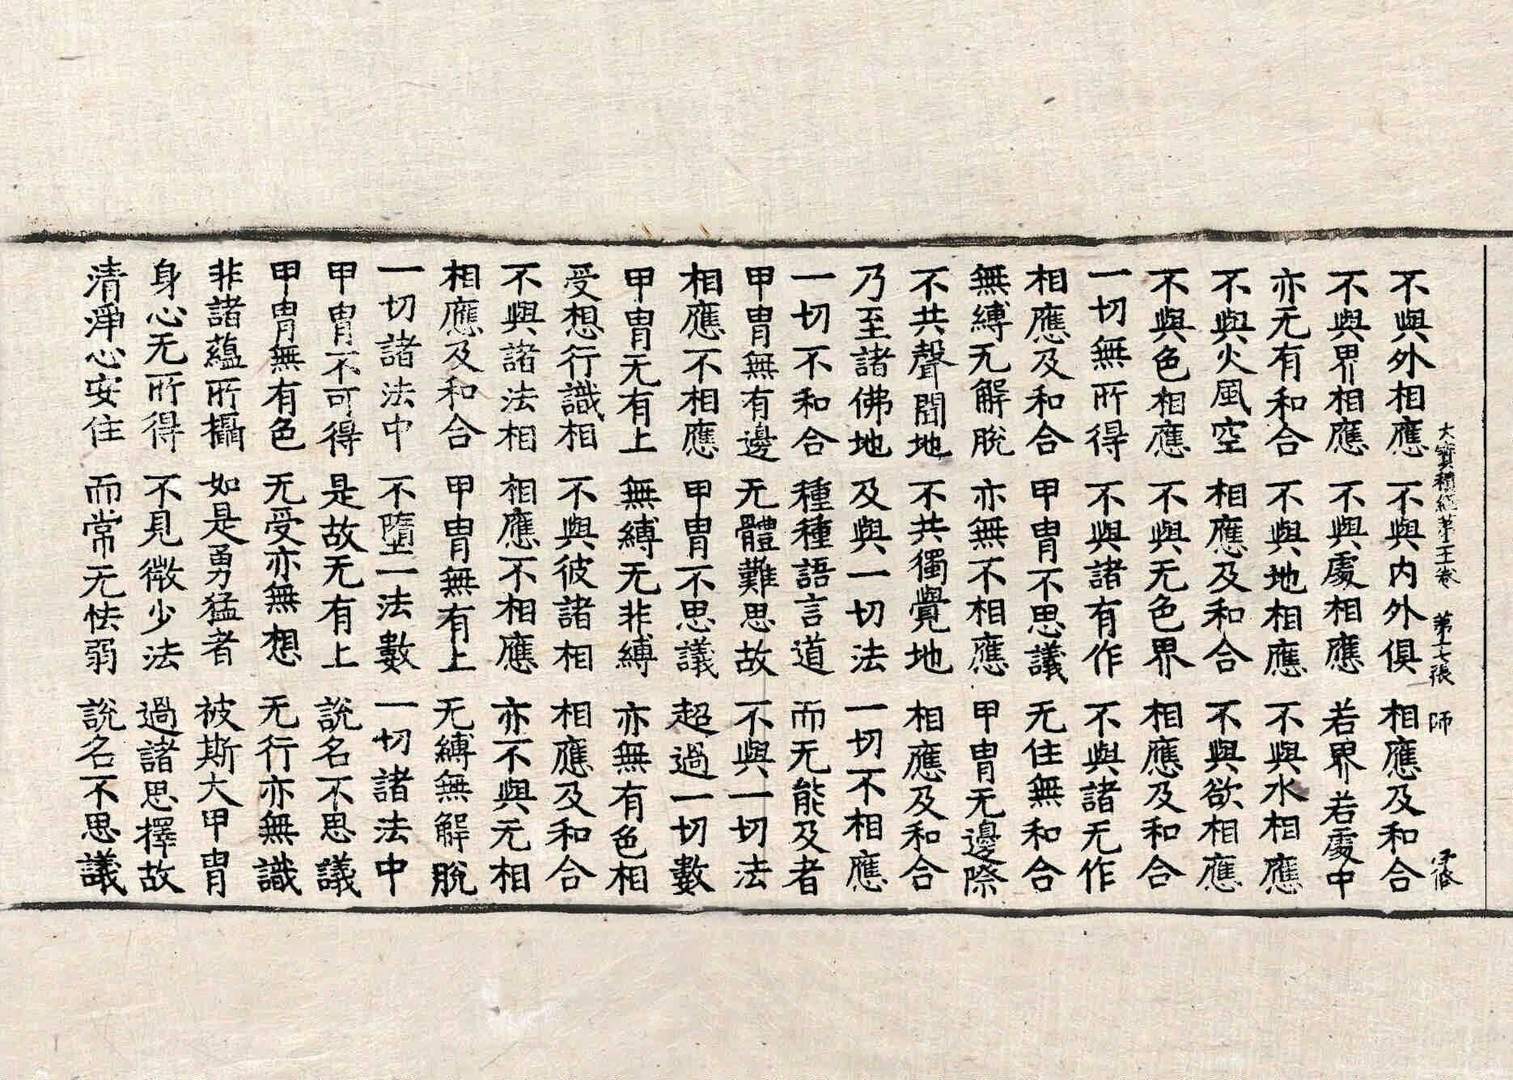 大寶積經第卷 第十七張 師
不與外相應 不與內外俱 相應及和合
不與界相應 不與處相應 若界若處中
亦无有和合 不與地相應 不與水相應
不與火風空 相應及和合 不與欲相應
不與色相應 不與无色界 相應及和合
一切無所得 不與諸有作 不與諸无作
相應及和合 甲冑不思議 无住無和合
無縛无解脫 亦無不相應 甲冑无邊際
不共聲聞地 不共獨覺地 相應及和合
乃至諸佛地 及與一切法 一切不相應
一切不和合 種種語言道 而无能及者
甲冑無有邊 无體難思故 不與一切法
相應不相應 甲冑不思議 超過一切數
甲冑无有上 無縛无非縛 亦無有色相
受想行識相 不與彼諸相 相應及和合
不與諸法相 相應不相應 亦不與无相
相應及和合 甲冑無有上 无縛無解脫
一切諸法中 不墮一法數 一切諸法中
甲冑不可得 是故无有上 說名不思議
甲冑無有色 无受亦無想 无行亦無識
非諸蘊所攝 如是勇猛者 被斯大甲冑
身心无所得 不見微少法 過諸思擇故
清淨心安住 而常无怯弱 說名不思議